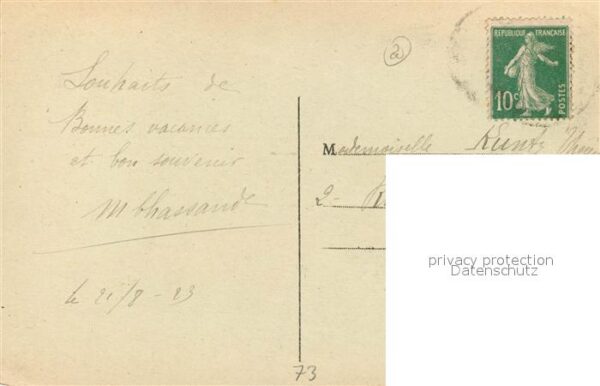 Souhaits de
Bonnes vacances
et bon souvenir
M Chassande
le 21/8 - 23
2
REPUBLIQUE FRANÇAISE
10c
POSTES
Mademoiselle Kuntz
2 -
privacy protection
Datenschutz
73